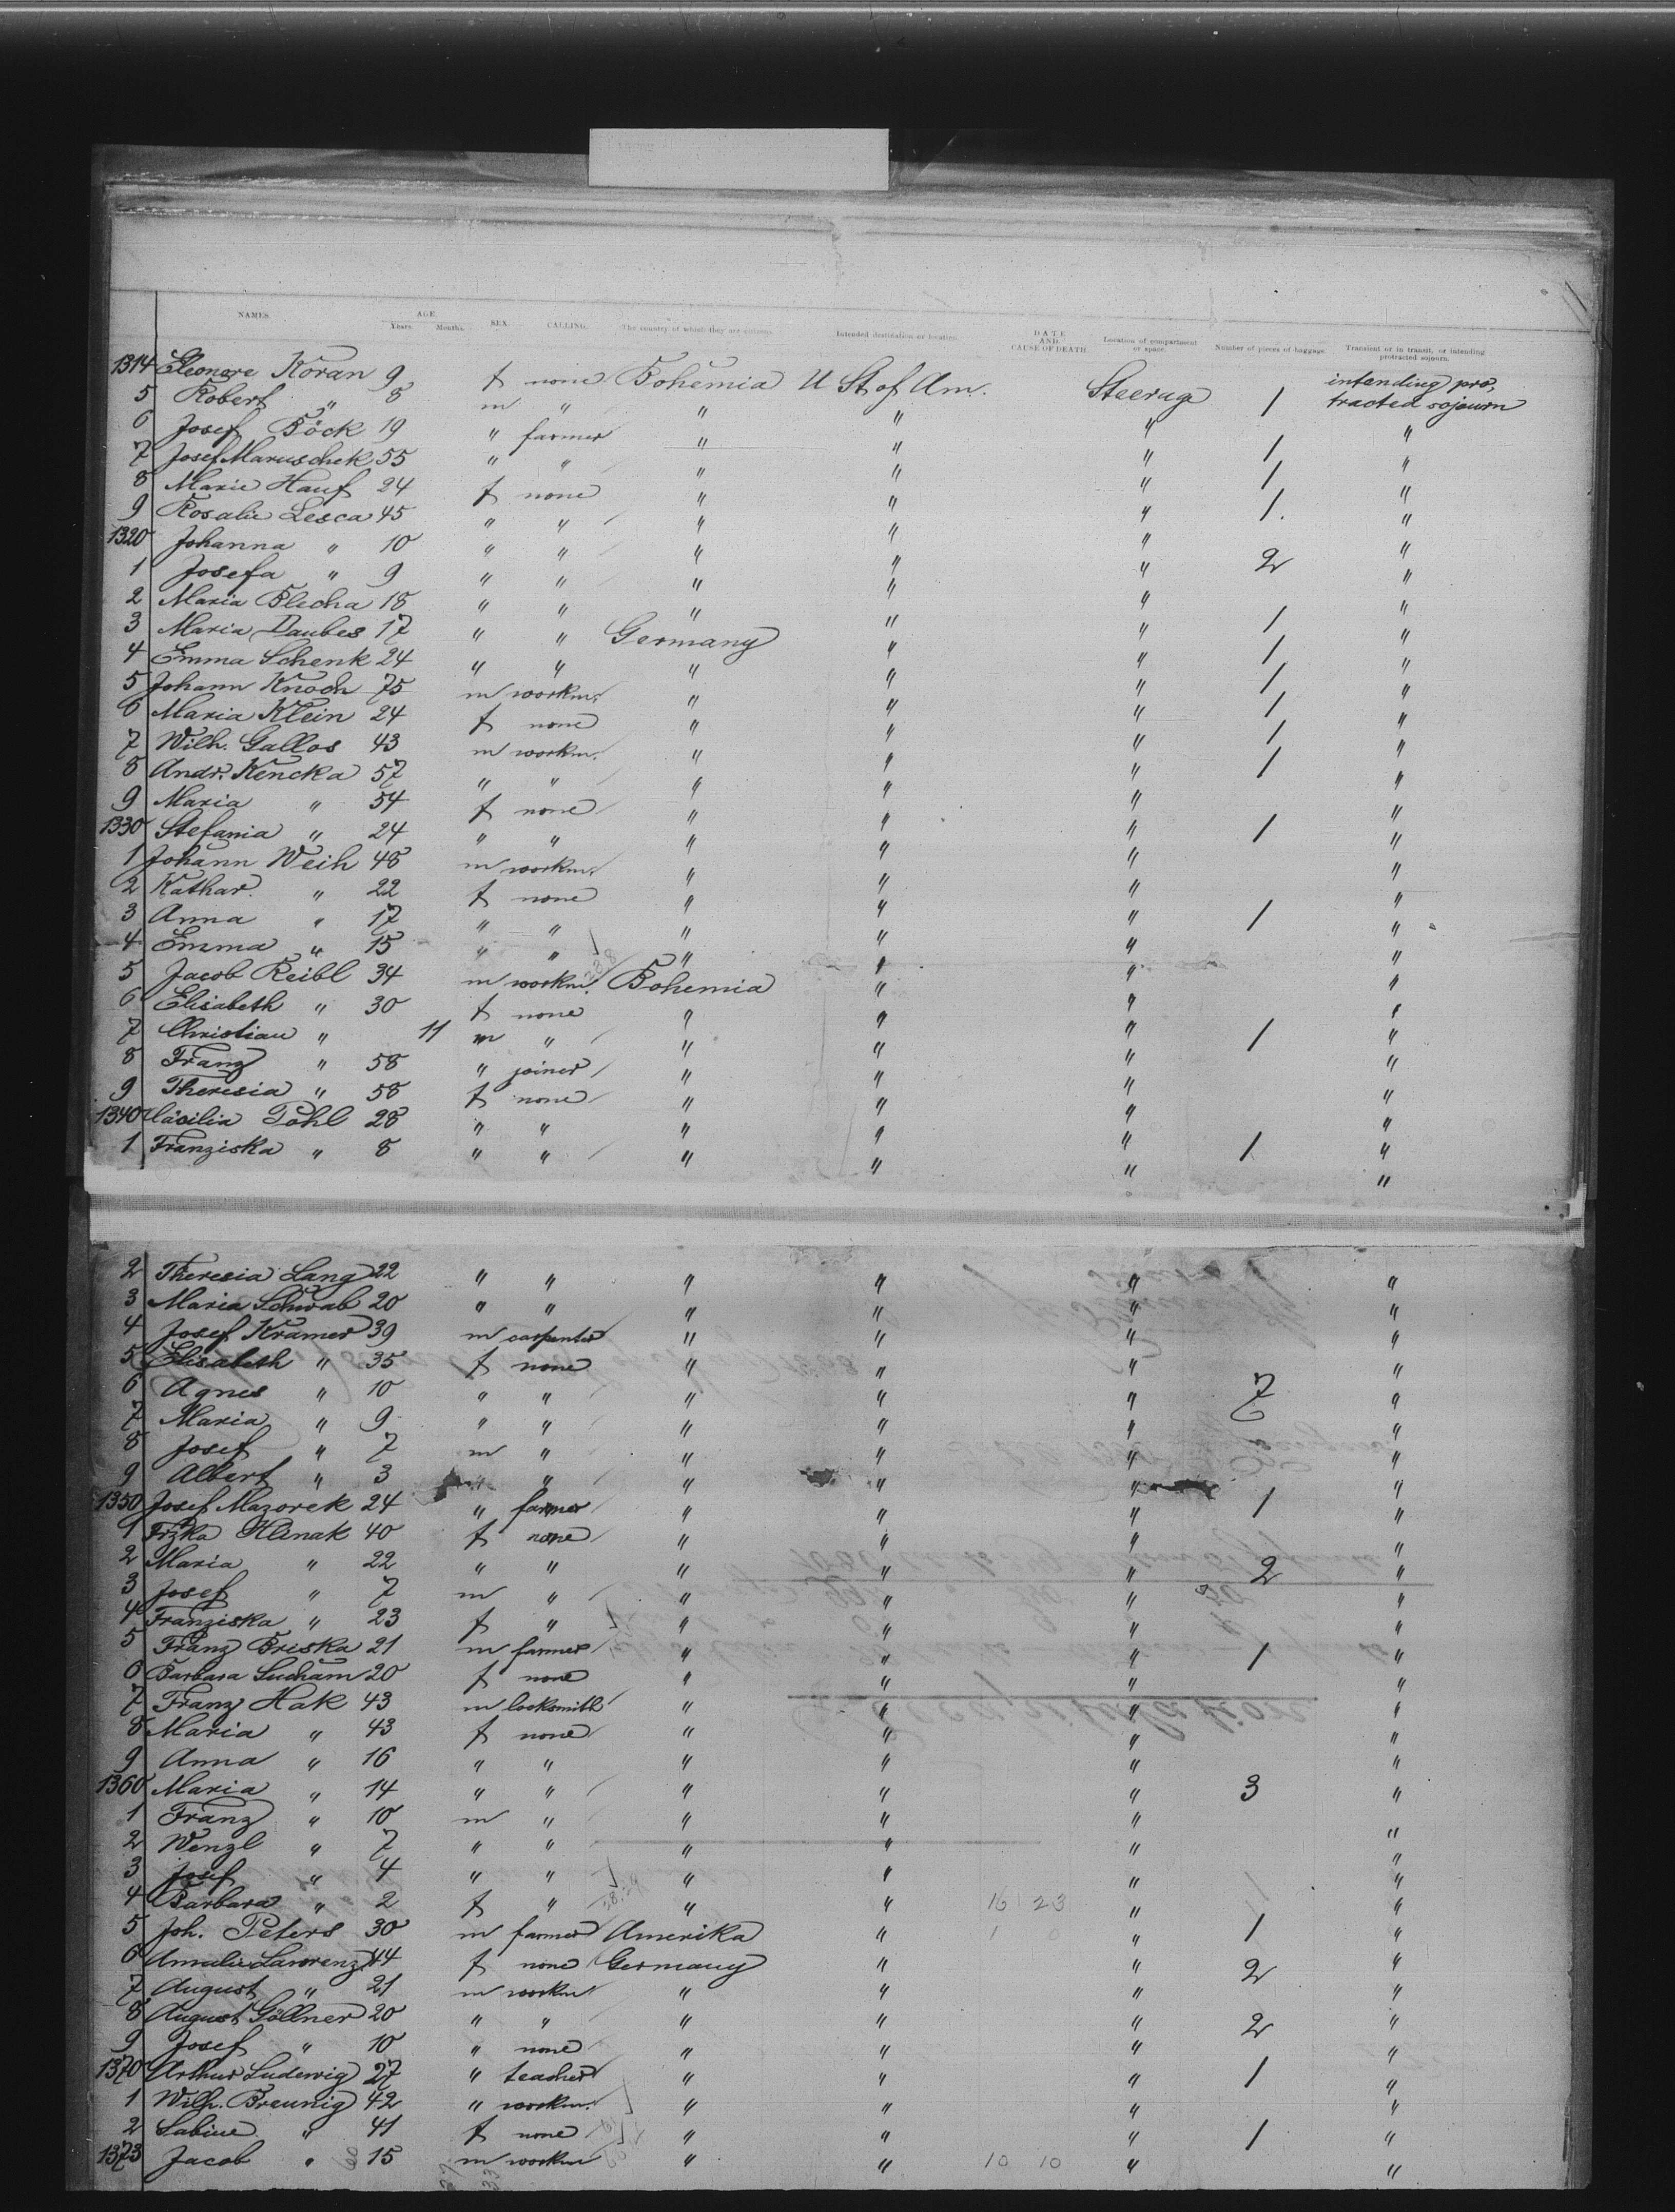 NAMES. AGE. SEX. CALLING. The country of which they are citizens. Intended destination or location. DATE AND CAUSE OF DEATH. Location of compartment or space. Number of pieces of baggage. Transient or in transit, or intending protracted sojourn.
Years. Months.
1314 Eleonore Koran 9 f none Bohemia U St of Am. Steerage intending pro-
5 Robert " 8 m " " " 1 tracted sojourn
6 Josef Böck 19 " farmer " " " 1 "
7 Josef Maruschek 55 " " " " " 1 "
8 Marie Hauf 24 f none " " " 1 "
9 Rosalie Lesca 45 " " " " " "
1320 Johanna " 10 " " " " " 2 "
1 Josefa " 9 " " " " " "
2 Maria Blecha 18 " " " " " 1 "
3 Maria Daubes 17 " " Germany " " 1 "
4 Emma Schenk 24 " " " " " 1 "
5 Johann Knoch 75 m workm. " " " 1 "
6 Maria Klein 24 f none " " " 1 "
7 Wilh. Gallos 43 m workm. " " " 1 "
8 Andr. Kencka 57 " " " " " "
9 Maria " 54 f none " " " "
1330 Stefania " 24 " " " " " 1 "
1 Johann Weih 48 m workm. " " " "
2 Kathar. " 22 f none " " " "
3 Anna " 17 " " " " " 1 "
4 Emma " 15 " " " " " "
5 Jacob Reibl 34 m workm. Bohemia " " "
6 Elisabeth " 30 f none " " " "
7 Christian " 11 m " " " " 1 "
8 Franz " 58 " joiner " " " "
9 Theresia " 58 f none " " " "
1340 Cäcilia Pohl 28 " " " " " "
1 Franziska " 8 " " " " " 1 "
2 Theresia Lang 22 " " " " " "
3 Maria Schwab 20 " " " " " "
4 Josef Kramer 39 m carpenter " " " "
5 Elisabeth " 35 f none " " " "
6 Agnes " 10 " " " " " 7 "
7 Maria " 9 " " " " " "
8 Josef " 7 m " " " " "
9 Albert " 3 " " " " " "
1350 Josef Mazorek 24 " farmer " " " 1 "
1 Frzka Hlinak 40 f none " " " "
2 Maria " 22 " " " " " 2 "
3 Josef " 7 m " " " " "
4 Franziska " 23 f " " " " "
5 Franz Briska 21 m farmer " " " 1 "
6 Barbara Sucham 20 f none " " " "
7 Franz Hak 43 m locksmith " " " "
8 Maria " 43 f none " " " "
9 Anna " 16 " " " " " "
1360 Maria " 14 " " " " " 3 "
1 Franz " 10 m " " " " "
2 Wenzl " 7 " " " " " "
3 Josef " 4 " " " " " "
4 Barbara " 2 f " " " 16 23 " "
5 Joh. Peters 30 m farmer Amerika " 1 0 " 1 "
6 Amalie Lawrenz 44 f none Germany " " 2 "
7 August " 21 m workm " " " "
8 August Göllner 20 " " " " " 2 "
9 Josef " 10 " none " " " "
1370 Arthur Ludewig 27 " teacher " " " 1 "
1 Wilh. Breunig 42 " workm. " " " "
2 Sabine " 41 f none " " " 1 "
1373 Jacob " 15 m workm " " 10 10 " "